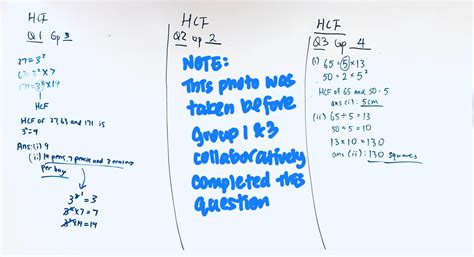 HCF
Q1 Gp 3
27 = 3³
63 = 3² × 7
171 = 3² × 19
HCF
HCF of 27, 63 and 171 is
3² = 9
Ans: (i) 9
(ii) 19 pens, 7 pencils and 3 erasers
per box
= 3
× 7 = 7
HCF
Q2 Gp 2
NOTE:
This photo was
taken before
group 1 & 3
collaboratively
completed this
question
HCF
Q3 Gp 4
(i) 65 = 5 × 13
50 = 2 × 5²
HCF of 65 and 50 = 5
ans (i): 5cm
(ii) 65 ÷ 5 = 13
50 ÷ 5 = 10
13 × 10 = 130
ans (ii): 130 squares